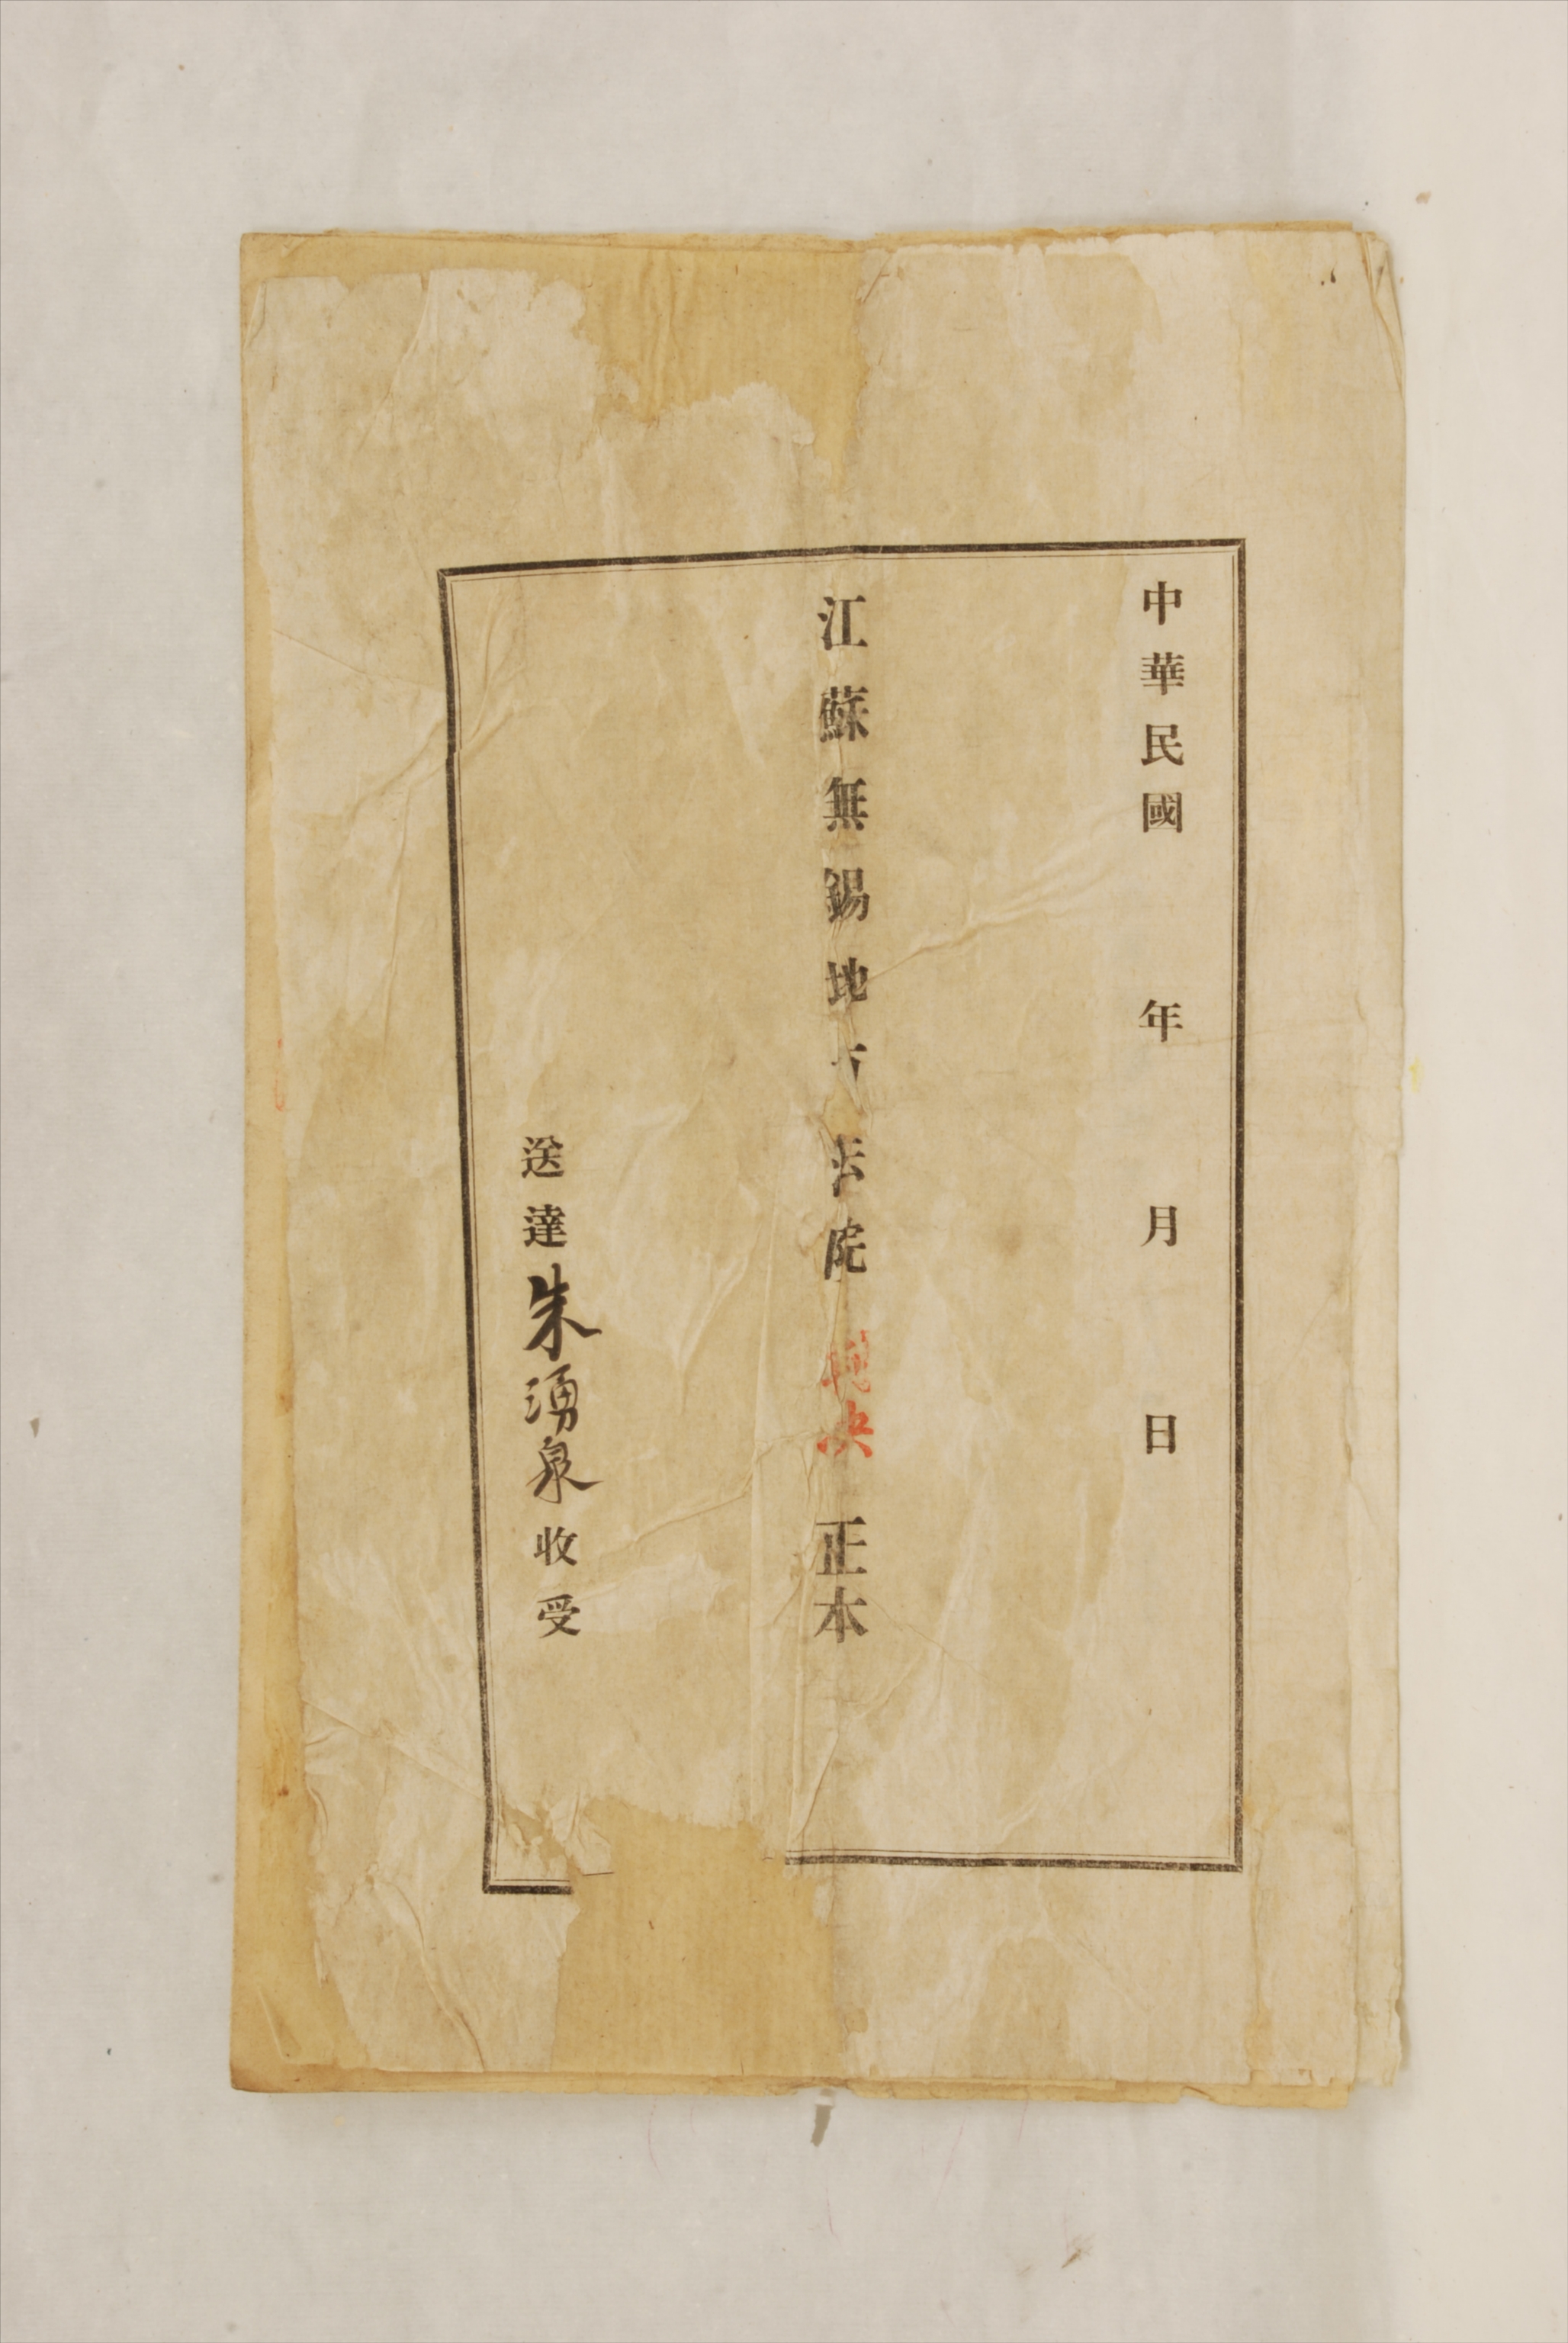 中華民國 年 月 日
江蘇無錫地方法院判決正本
送達朱湧泉收受